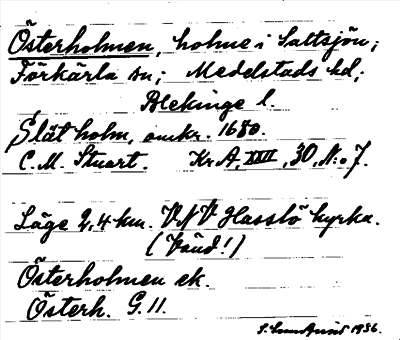 Österholmen, holme i Saltsjön;
Förkärla sn; Medelstads hd;
Blekinge l.
Slät holm, omkr. 1680.
C. M. Stuart. KrA, XXII, 30, N:o 7.
Läge 2,4 km. VNV Hasslö kyrka.
(Vänd!)
Österholmen ek.
Österh. G. 11.
1936.